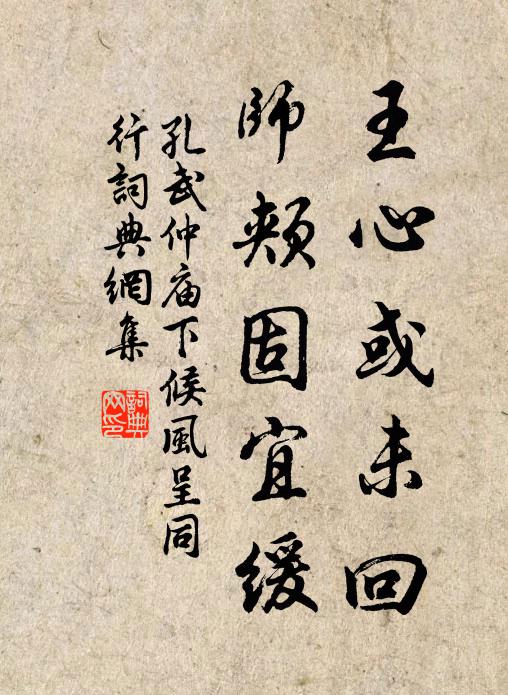 王心或未回
師頰固宜緩
孔武仲庙下候風呈同
行詞典網集
詞典
网印